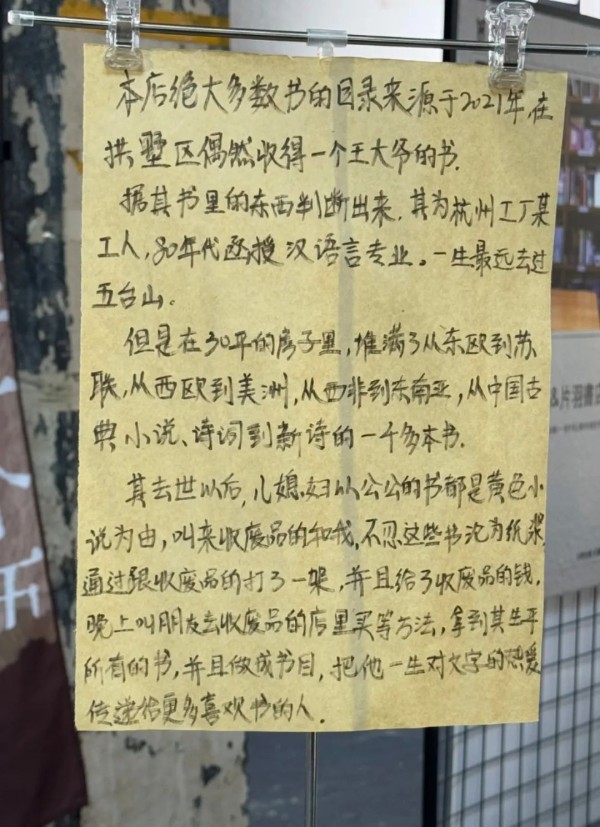 本店绝大多数书的目录来源于2021年,在
拱墅区偶然收得一个王大爷的书.
据其书里的东西判断出来,其为杭州工厂某
工人,80年代函授汉语言专业。一生最远去过
五台山.
但是在30平的房子里,堆满了从东欧到苏
联,从西欧到美洲,从西非到东南亚,从中国古
典小说、诗词到新诗的一千多本书.
其去世以后,儿媳妇以公公的书都是黄色小
说为由,叫来收废品的和我,不忍这些书沦为纸浆,
通过跟收废品的打了一架,并且给了收废品的钱,
晚上叫朋友去收废品的店里买等方法,拿到其生平
所有的书,并且做成书目,把他一生对文字的热爱
传递给更多喜欢书的人.
&片羽書店